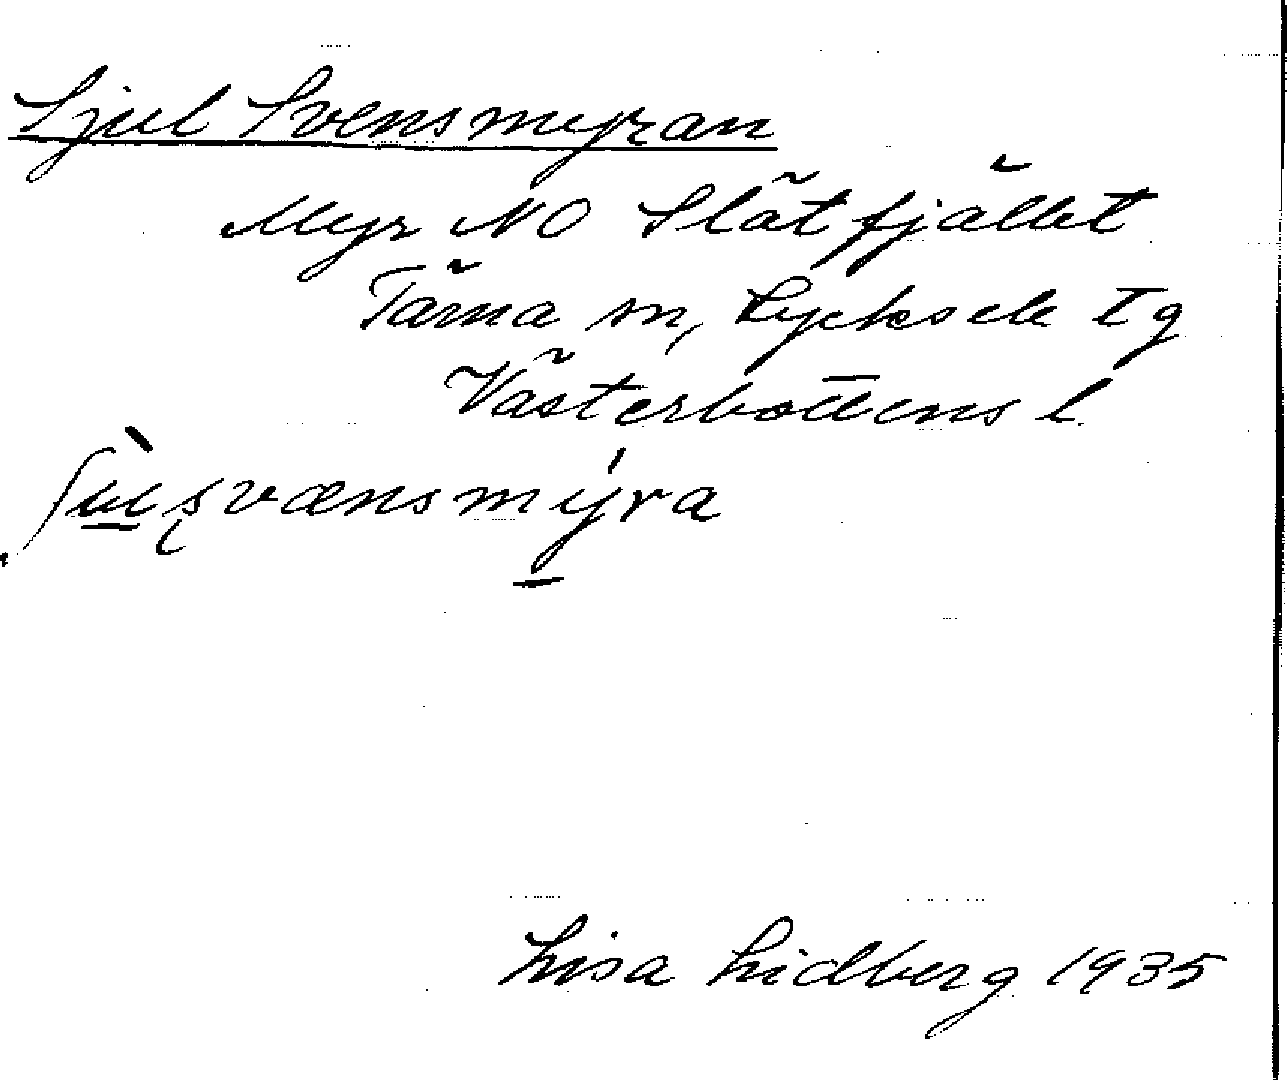 Ljul Svensmyran
Myr NO Slätfjället
Tärna sn, Lycksele tg
Västerbottens l.
svænsmý̠ra
Lisa Lidberg 1935